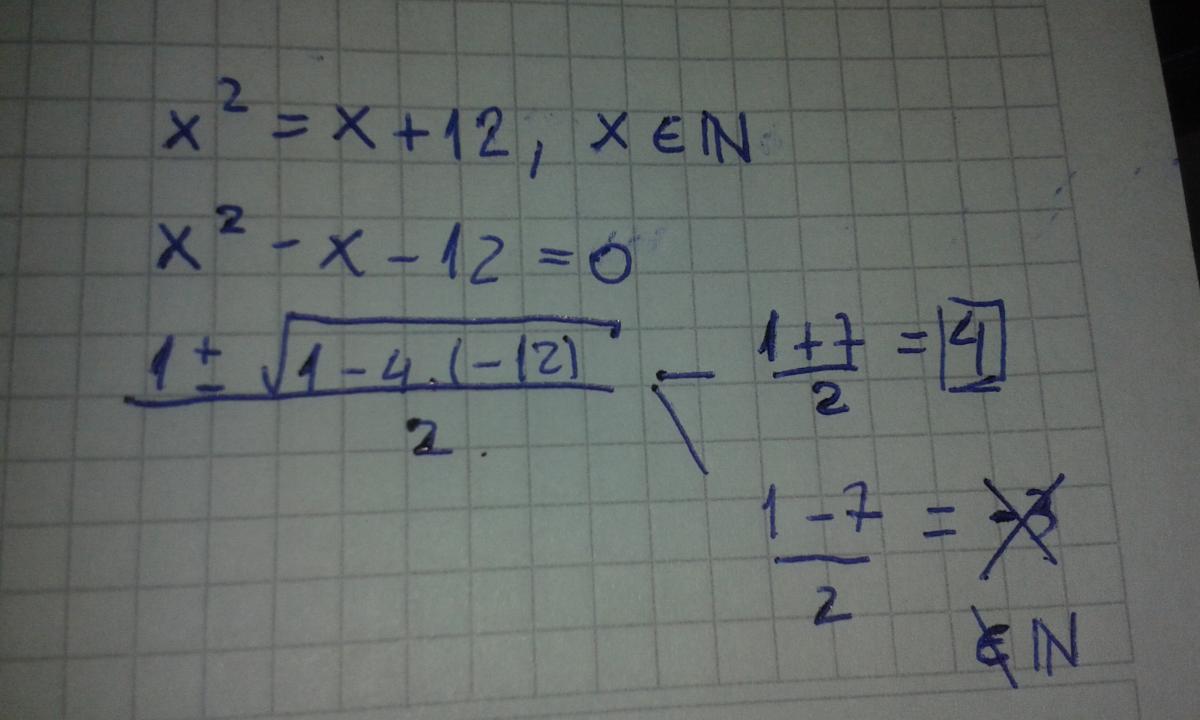 x² = x + 12, x ∈ ℕ
x² - x - 12 = 0
(1 ± √(1 - 4 . (-12))) / 2
(1 + 7) / 2 = 4
(1 - 7) / 2 = -3
∉ ℕ